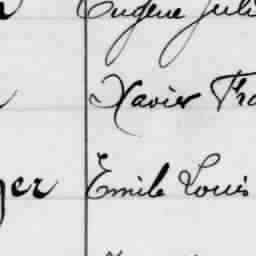 Eugène Juli
Xavier Fra
ger Emile Louis